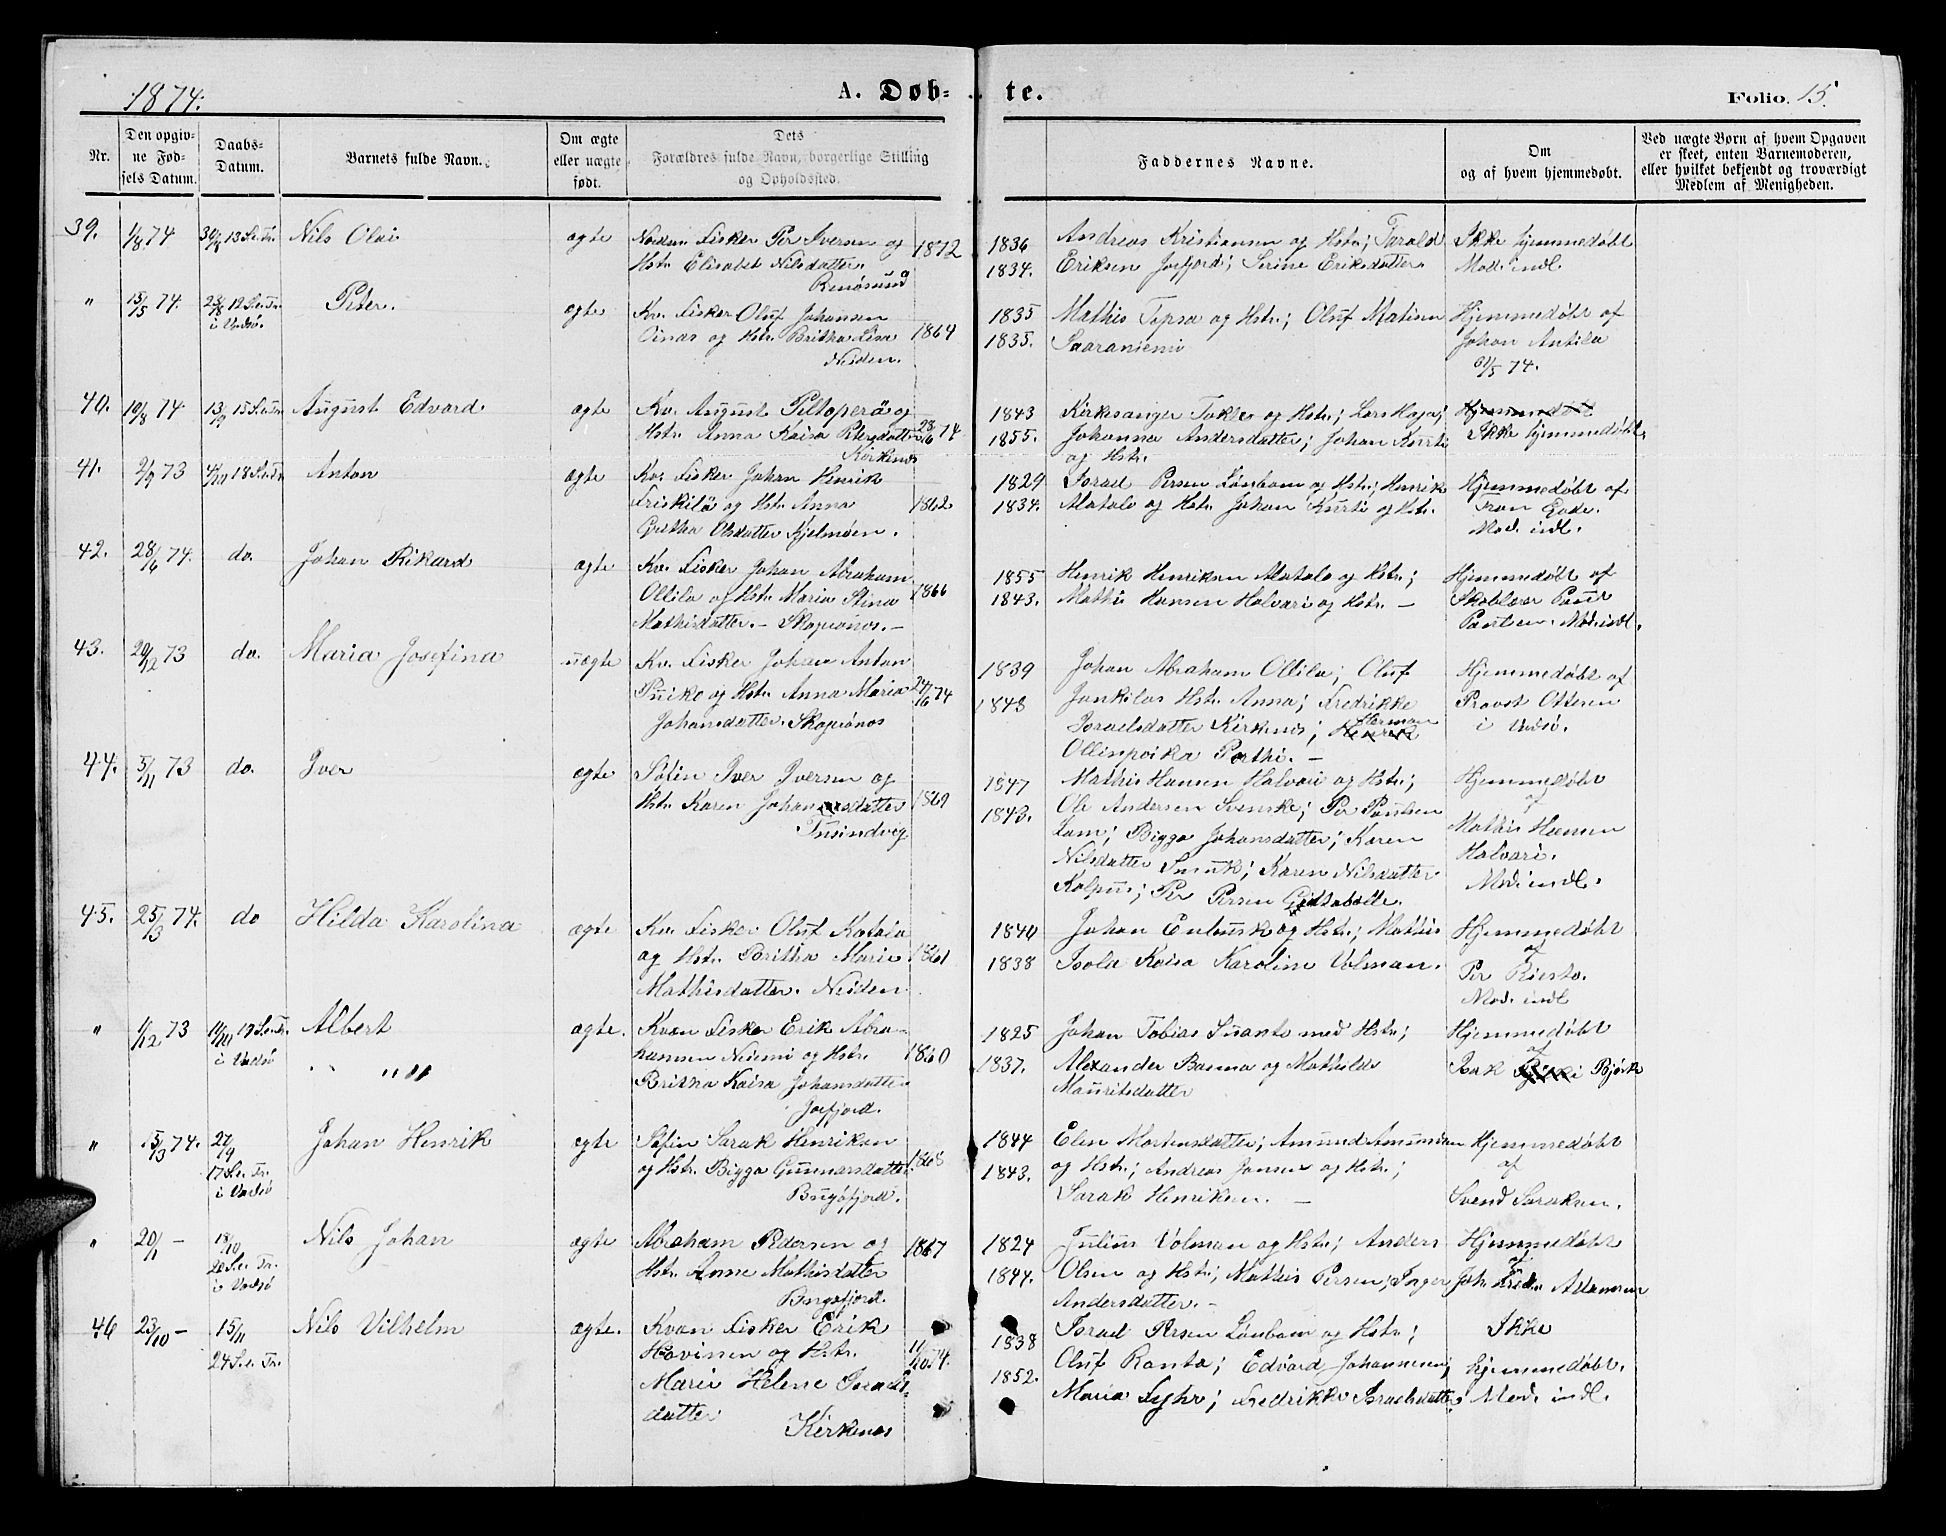 1874.
A. Døb- te.
Folio. 15.
Nr.
Den opgiv-
ne Fød-
sels Datum.
Daabs-
Datum.
Barnets fulde Navn.
Om ægte
eller uægte
født.
Dets
Forældres fulde Navn, borgerlige Stilling
og Opholdssted.
Faddernes Navne.
Om
og af hvem hjemmedøbt.
Ved uægte Børn af hvem Opgaven
er skeet, enten Barnemoderen,
eller hvilket bekjendt og troværdigt
Medlem af Menigheden.
39. 1/8 74 30/8 13 S.e.Tr. Nils Olai ægte Nordm. Fisker Per Iversen og 1872
Hstr. Elisabet Nilsdatter.
Renøsund
1836 Andreas Kristiansen og Hstr; Tarald Ikke hjemmedøbt
1834. Eriksen Jarfjord; Serine Eriksdatter. Mod. indl
" 15/5 74. 23/8 12 S.e.Tr. Peter. ægte Kv. Fisker Oluf Johansen
i Vadsø. Oinas og Hstr. Britha Lisa 1864
Neiden.
1835 Mathis Topsa og Hstr; Oluf Matisen Hjemmedøbt af
1835. Saaraniemi Johan Antila
31/5 74.
40. 10/8 74. 13/9 15 S.e.Tr. August Edvard ægte Kv. August Peltoperä og
Hstr. Anna Kaisa Petersdatter 28/6 74
Kirkenes
1843 Kirkesanger Tokle og Hstr; Lars Haga; Hjemmedøbt
1855. Johanna Andersdatter; Johan Kurti Ikke hjemmedøbt.
og Hstr.
41. 2/9 73 4/10 18 S.e.Tr. Anton ægte Kv. Fisker Johan Henrik
Friskilä og Hstr. Anna 1862
Gretha Olsdatter Hjelmøen.
1829 Israel Persen Lønbom og Hstr; Henrik Hjemmedøbt af
1834. Matalo og Hstr. Johan Kurti og Hstr. Fron Gade.
Mod. indl.
42. 28/6 74. do. Johan Rikard ægte Kv. Fisker Johan Abraham
Ollila og Hstr Maria Stina 1866
Mathisdatter. – Skogianes. –
1855 Henrik Henriksen Matalo og Hstr; Hjemmedøbt af
1843. Mathis Hansen Halvari og Hstr. – Skolelærer Paul
Paulsen. Mod. indl.
43. 29/12 73 do. Maria Josefina uægte Kv. Fisker Johan Anton
Puiko og Hstr. Anna Maria 24/6 74
Johansdatter. Skogianes
1839 Johan Abraham Ollila; Oluf Hjemmedøbt af
1848 Junkilas Hstr. Anna; Fredrikke Provst Ottesen
Israelsdatter Kirkenes; Henrik Herman i Vadsø.
Ollinpoika Porthi. –
44. 5/11 73 do. Iver ægte Søfin Iver Iversen og
Hstr. Karen Johannesdatter 1869
Tusindvig
1847 Mathis Hansen Halvari og Hstr; Hjemmedøbt
1843. Ole Andersen Svenske; Per Paulsen af
Lam; Bigga Johansdatter; Karen Mathis Hansen
Nilsdatter Smuk; Karen Nilsdatter Halvari.
Kalpus; Per Persen Mod. indl.
45. 25/3 74. do Hilda Karolina ægte Kv. Fisker Oluf Katala
og Hstr. Britha Marie 1861
Mathisdatter. Neiden
1840 Johan Enbusk og Hstr; Mathis Hjemmedøbt
1838 Isola Kaisa Karoline Volman. af
Per Riesto.
Mod. indl
" 1/12 73 11/10 19 S.e.Tr. Albert ægte. Kvæn Fisker Erik Abra-
i Vadsø hamsen Niemi og Hstr. 1860
Britha Kaisa Johansdatter
Jarfjord.
1825 Johan Tobias Suanto med Hstr; Hjemmedøbt
1837. Alexander Banna og Mathilde af
Mauritsdatter Isak Bjørk
" 15/3 74. 27/9 Johan Henrik ægte Søfin Sarak Henriksen
17 S.e.Tr. og Hstr. Bigga Gunnarsdatter 1868
i Vadsø Bugøfjord.
1844 Elen Mortensdatter; Amund Amundsen Hjemmedøbt
1843. og Hstr; Andreas Jonsen og Hstr; af
Sarak Henriksen. – Svend Saraksen.
" 20/1 – 18/10 Nils Johan ægte Abraham Pedersen og 1867
20 S.e.Tr. Hstr. Anne Mathisdatter
i Vadsø Bugøfjord.
1824 Julius Volman og Hstr; Anders Hjemmedøbt
1844. Olsen og Hstr; Mathis Persen; Inger af
Andersdatter. –
46 23/10 – 15/11 Nils Vilhelm ægte. Kvæn Fisker Erik
24 S.e.Tr. Hovinen og Hstr. 11/10 74.
Marie Helene Israels-
datter
Kirkenes
1838 Israel Persen Lønbom og Hstr; Ikke
1852. Oluf Ranta; Edvard Johannesen; hjemmedøbt.
Maria Fyhr; Fredrikke Israelsdatter Mod. indl.